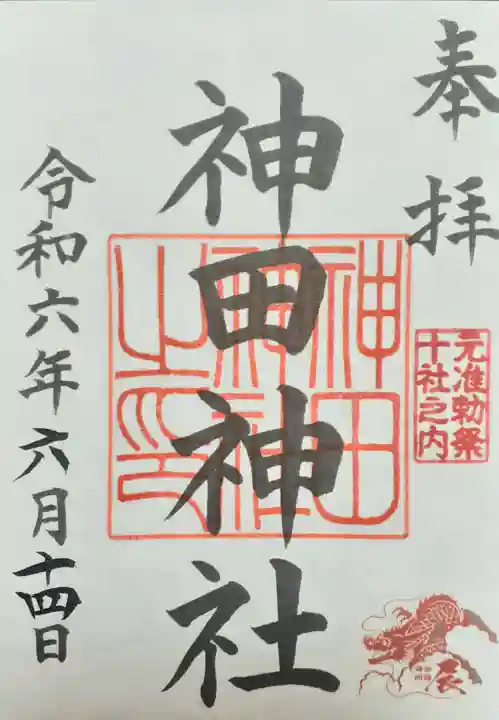 奉拝
元准勅祭
十社之内
辰
神田神社
神田
神社
之印
令和六年六月十四日